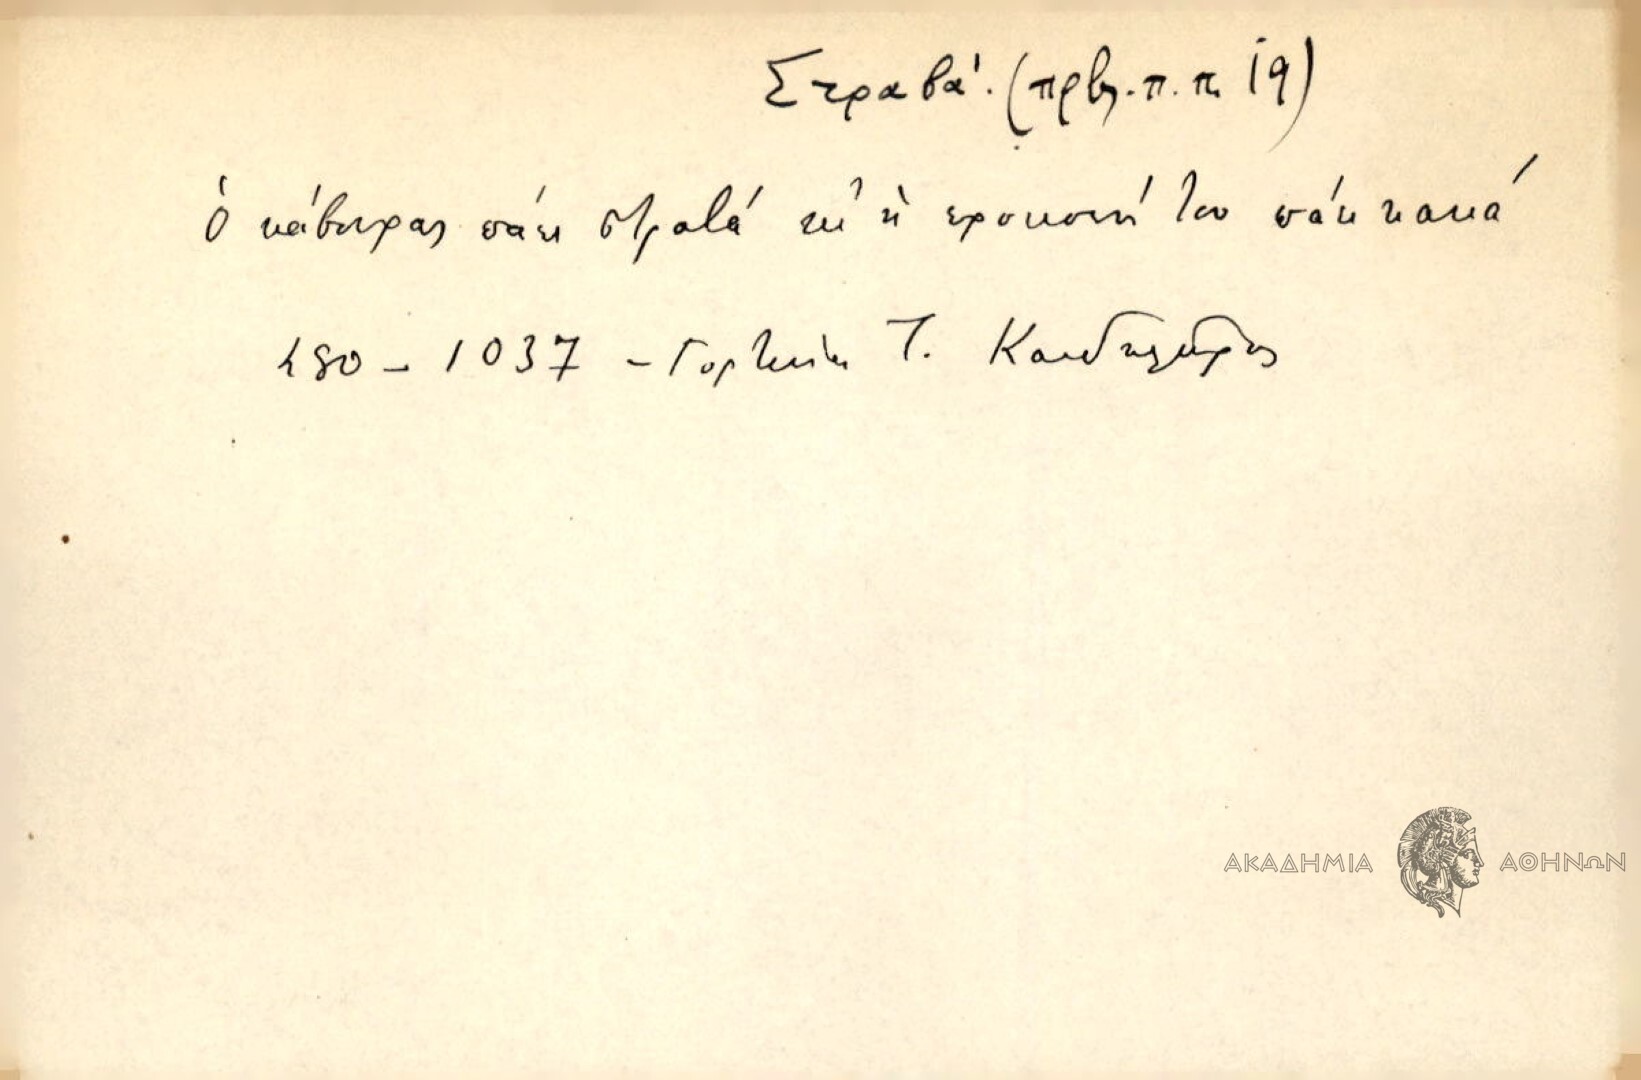 Στραβά. (πρβλ. π. π. 19)
Ὁ κάβουρας πάει στραβά κι' ἡ προκοπή του πάει κακά
280 - 1037 - Γορτυνία Τ. Κανδηλῶρος
ΑΚΑΔΗΜΙΑ ΑΘΗΝΩΝ